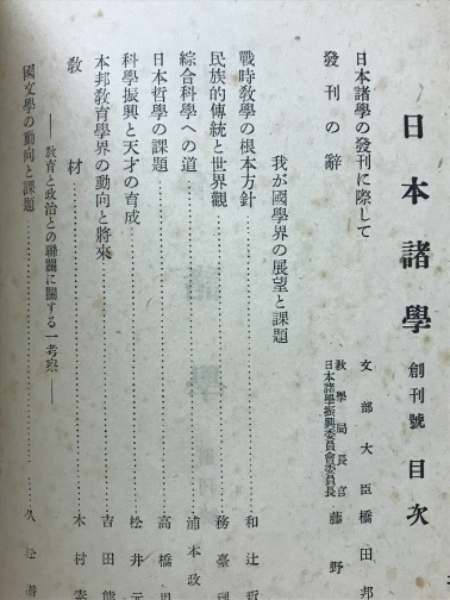 日本諸學 創刊號 目次
日本諸學の發刊に際して 文部大臣 橋田邦
發刊の辭 敎學局長官 日本諸學振興委員會委員長 藤野
我が國學界の展望と課題
戰時敎學の根本方針 和辻哲
民族的傳統と世界觀 務臺理
綜合科學への道 浦本政
日本哲學の課題 高橋
科學振興と天才の育成 松井元
本邦敎育學界の動向と將來 吉田熊
敎材 木村素
——敎育と政治との聯關に關する一考察——
國文學の動向と課題 久松潛